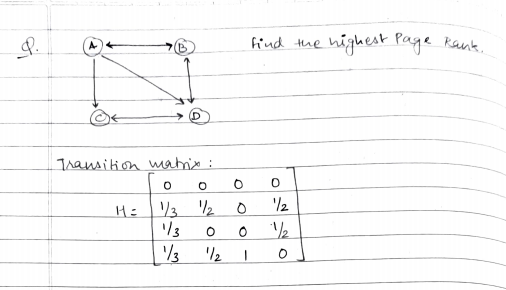 Q.
A B
Find the highest Page Rank.
C D
Transition matrix :
0 0 0 0
H = 1/3 1/2 0 1/2
1/3 0 0 1/2
1/3 1/2 1 0